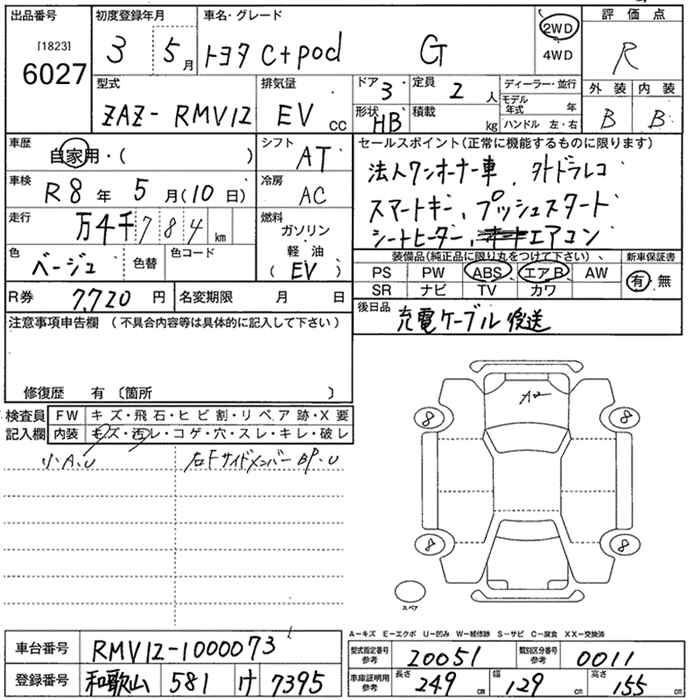 出品番号
[1823]
6027
初度登録年月
3 5月
車名・グレード
トヨタ C+pod G
2WD
4WD
評価点
R
外装 内装
B B
型式
ZAZ-RMV12
排気量
EV cc
ドア 3
定員 2人
形状 HB
積載 kg
ディーラー・並行
モデル年式 年
ハンドル 左・右
車歴
自家用・( )
シフト
AT
車検
R8年 5月(10日)
冷房
AC
走行
万4千784km
燃料
ガソリン
軽・油
(EV)
色
ベージュ
色替
色コード
R券 7,720円
名変期限 月 日
セールスポイント(正常に機能するものに限ります)
法人ワンオーナー車、外ドラレコ
スマートキー、プッシュスタート
シートヒーター、エアコン
装備品(純正品に限り丸をつけて下さい)、
新車保証書
PS PW ABS エアB AW
SR ナビ TV カワ
有・無
後日品
充電ケーブル後送
注意事項申告欄(不具合内容等は具体的に記入して下さい)
修復歴 有〔箇所 〕
検査員
記入欄
FW キズ・飛石・ヒビ割・リペア跡・X要
内装 キズ・汚レ・コゲ・穴・スレ・キレ・破レ
小A、U
右FサイドメンバーBP、U
A2
8
8
8
8
スペア
A-キズ E-エクボ U-凹み W-補修跡 S-サビ C-腐食 XX-交換済
車台番号 RMV12-1000073
登録番号 和歌山 581 け 7395
型式指定番号
参考
20051
類別区分番号
参考
0011
車庫証明用
参考
長さ 249cm
幅 129cm
高さ 155cm